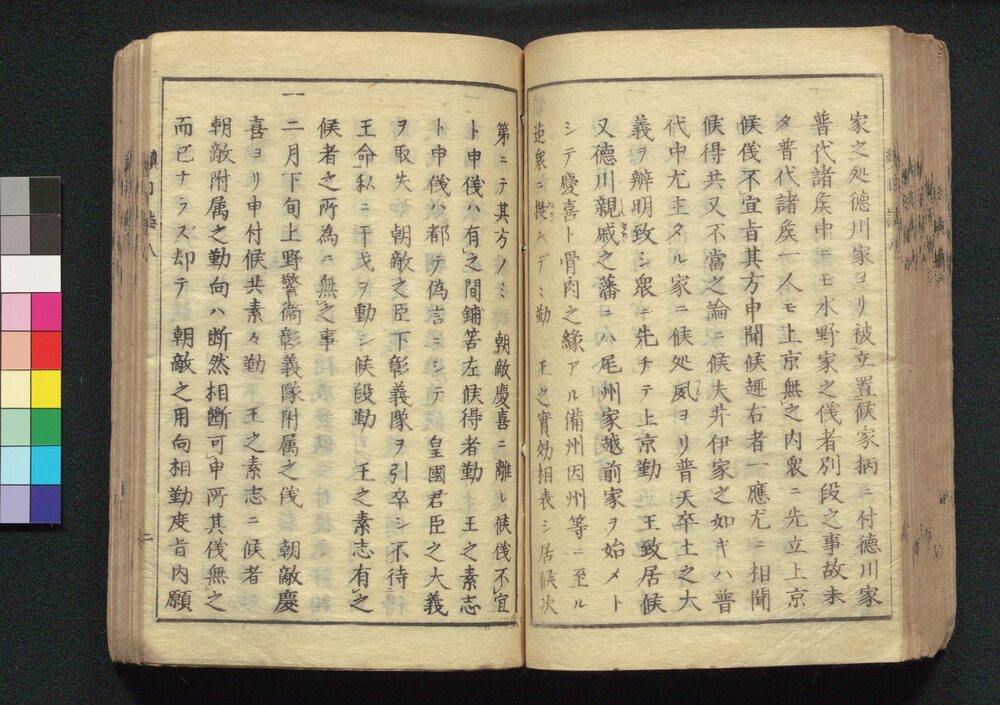 家之処徳川家ヨリ被立置候家柄ニ付徳川家
普代諸矦中ニモ水野家之儀者別段之事故未
タ普代諸矦一人モ上京無之内衆ニ先立上京
候儀不宜旨其方申聞候趣右者一應尤ニ相聞
候得共又不當之論ニ候夫井伊家之如キハ普
代中尤主タル家ニ候処夙ヨリ普天卒土之大
義ヲ辨明致シ衆ニ先チテ上京勤　王致居候
又徳川親戚之藩ニハ尾州家越前家ヲ始メト
シテ慶喜ト骨肉之縁アル備州因州等ニ至ル
迄衆ニ挺ンデヽ勤　王之實効相表シ居候次
第ニテ其方ノミ　朝敵慶喜ニ離レ候儀不宜
ト申儀ハ有之間鋪筈左候得者勤　王之素志
ト申儀ハ都テ偽言ニシテ　皇國君臣之大義
ヲ取失ヒ朝敵之臣下彰義隊ヲ引卒シ不待
王命私ニ干戈ヲ動シ候段勤　王之素志有之
候者之所為ニ無之事
一二月下旬上野警衛彰義隊附属之儀　朝敵慶
喜ヨリ申付候共素々勤　王之素志ニ候者
朝敵附属之勤向ハ断然相斷可申所其儀無之
而已ナラズ却テ　朝敵之用向相勤度旨内願